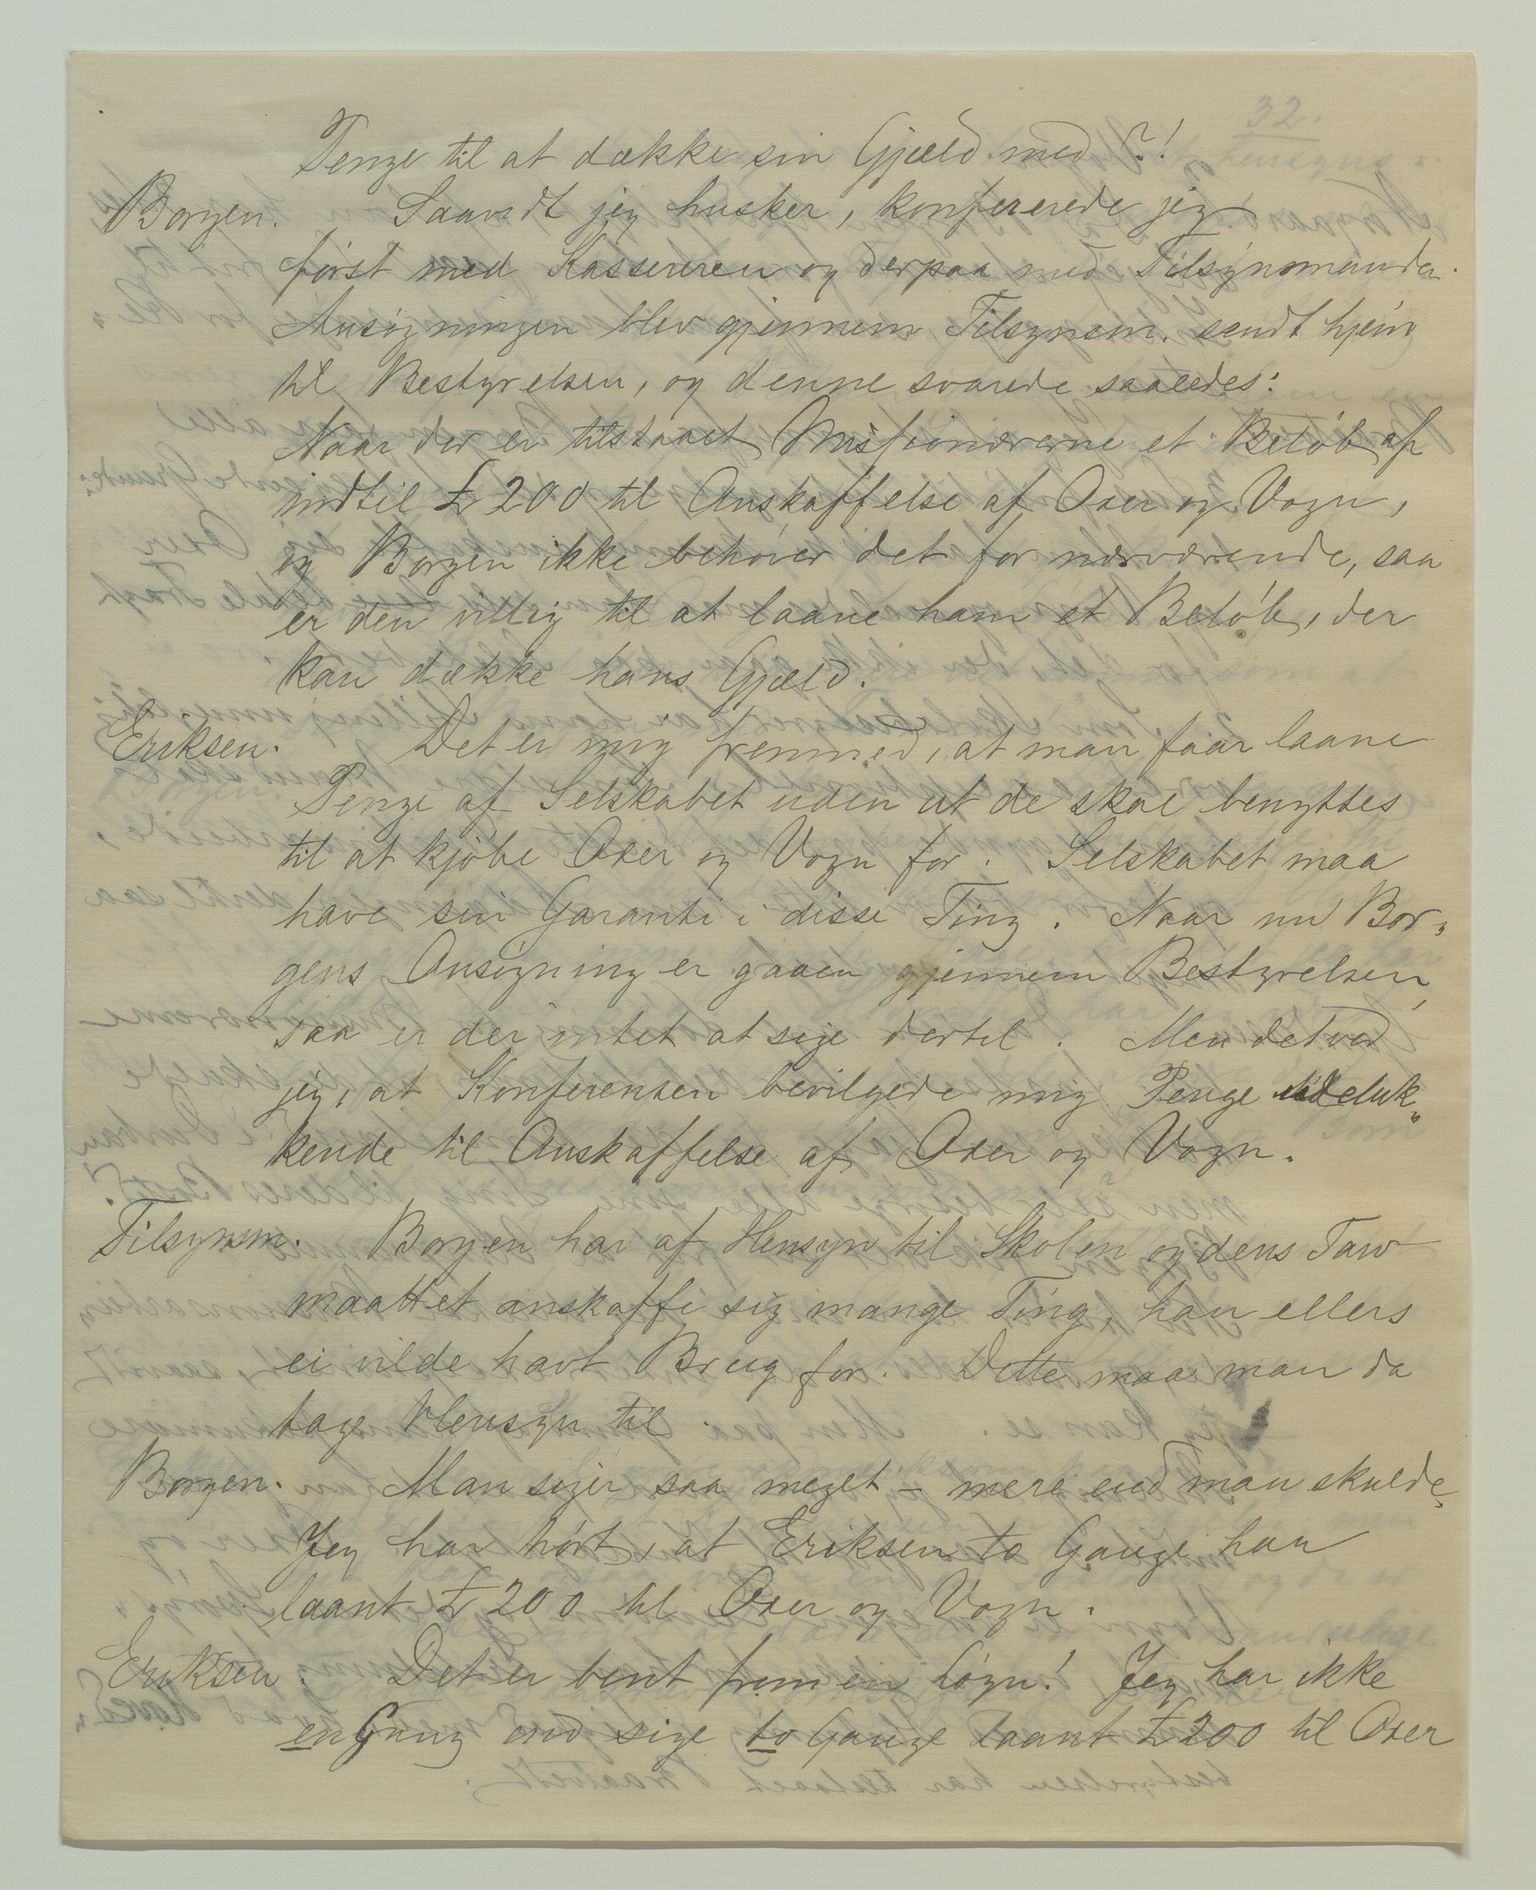 32.
Penge til at dække sin Gjæld med?!
Borgen. Saavidt jeg husker, konfererede jeg
først med Kassereren og derpaa med Tilsynsmanden.
Ansøgningen blev gjennem Tilsynsm. sendt hjem
til Bestyrelsen, og denne svarede saaledes:
Naar der er tilstaaet Missionærerne et Beløb af
indtil £ 200 til Anskaffelse af Oxer og Vogn,
og Borgen ikke behøver det for nærværende, saa
er den villig til at laane ham et Beløb, der
kan dække hans Gjæld.
Eriksen. Det er mig fremmed, at man faar laane
Penge af Selskabet uden at de skal benyttes
til at kjøbe Oxer og Vogn for. Selskabet maa
have sin Garanti i disse Ting. Naar nu Bor„
gens Ansøgning er gaaen gjennem Bestyrelsen,
saa er der intet at sige dertil. Men det ved
jeg, at Konferensen bevilgede mig Penge udeluk„
kende til Anskaffelse af Oxer og Vogn.
Tilsynsm. Borgen har af Hensyn til Skolen og dens Tarv
maattet anskaffe sig mange Ting, han ellers
ei vilde havt Brug for. Dette maa man da
tage Hensyn til.
Borgen. Man siger saa meget – mere end man skulde.
Jeg har hørt, at Eriksen to Gange har
laant £ 200 til Oxer og Vogn.
Eriksen. Det er bent frem en Løgn! Jeg har ikke
en Gang end sige to Gange laant £ 200 til Oxer